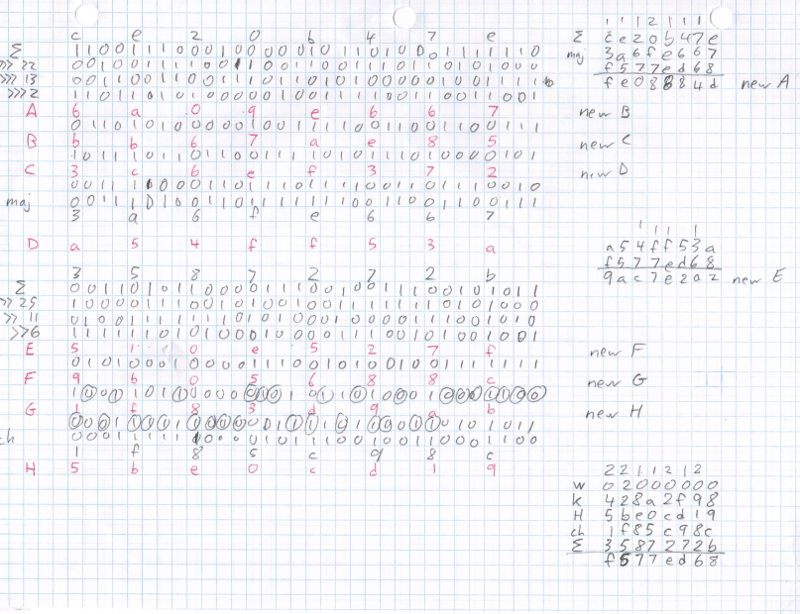 c e 2 0 b 4 7 e
Σ 11001110001000001011010001111110
>>> 22 00100111100110011001110110101000
>>> 13 00110011001110110101000001001111
>>> 2 11011010100000100111100110011001
A 6 a 0 9 e 6 6 7
01101010000010011110011001100111
B b b 6 7 a e 8 5
10111011011001111010111010000101
C 3 c 6 e f 3 7 2
00111100011011101111001101110010
maj 00111010011011111110011001100111
3 a 6 f e 6 6 7
D a 5 4 f f 5 3 a
3 5 8 7 2 7 2 b
Σ 00110101100001110010011100101011
>> 25 10000111001010010011111110101000
>> 11 01001111111010100010000111001010
>>6 11111101010001000011100101001001
E 5 1 0 e 5 2 7 f
01010001000011100101001001111111
F 9 b 0 5 6 8 8 c
10011011000001010110100010001100
G 1 f 8 3 d 9 a b
00011111100000111101100110101011
ch 00011111100001011100100110001100
1 f 8 5 c 9 8 c
H 5 b e 0 c d 1 9
1 1 1 2 1 1 1
Σ c e 2 0 b 4 7 e
maj 3 a 6 f e 6 6 7
f 5 7 7 e d 6 8
f e 0 8 8 8 4 d new A
new B
new C
new D
1 1 1 1
a 5 4 f f 5 3 a
f 5 7 7 e d 6 8
9 a c 7 e 2 a 2 new E
new F
new G
new H
2 2 1 1 2 1 2
W 0 2 0 0 0 0 0 0
K 4 2 8 a 2 f 9 8
H 5 b e 0 c d 1 9
ch 1 f 8 5 c 9 8 c
Σ 3 5 8 7 2 7 2 b
f 5 7 7 e d 6 8